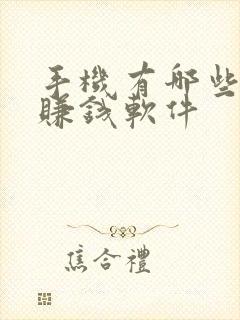 手機有哪些
賺錢軟件
焦合禮